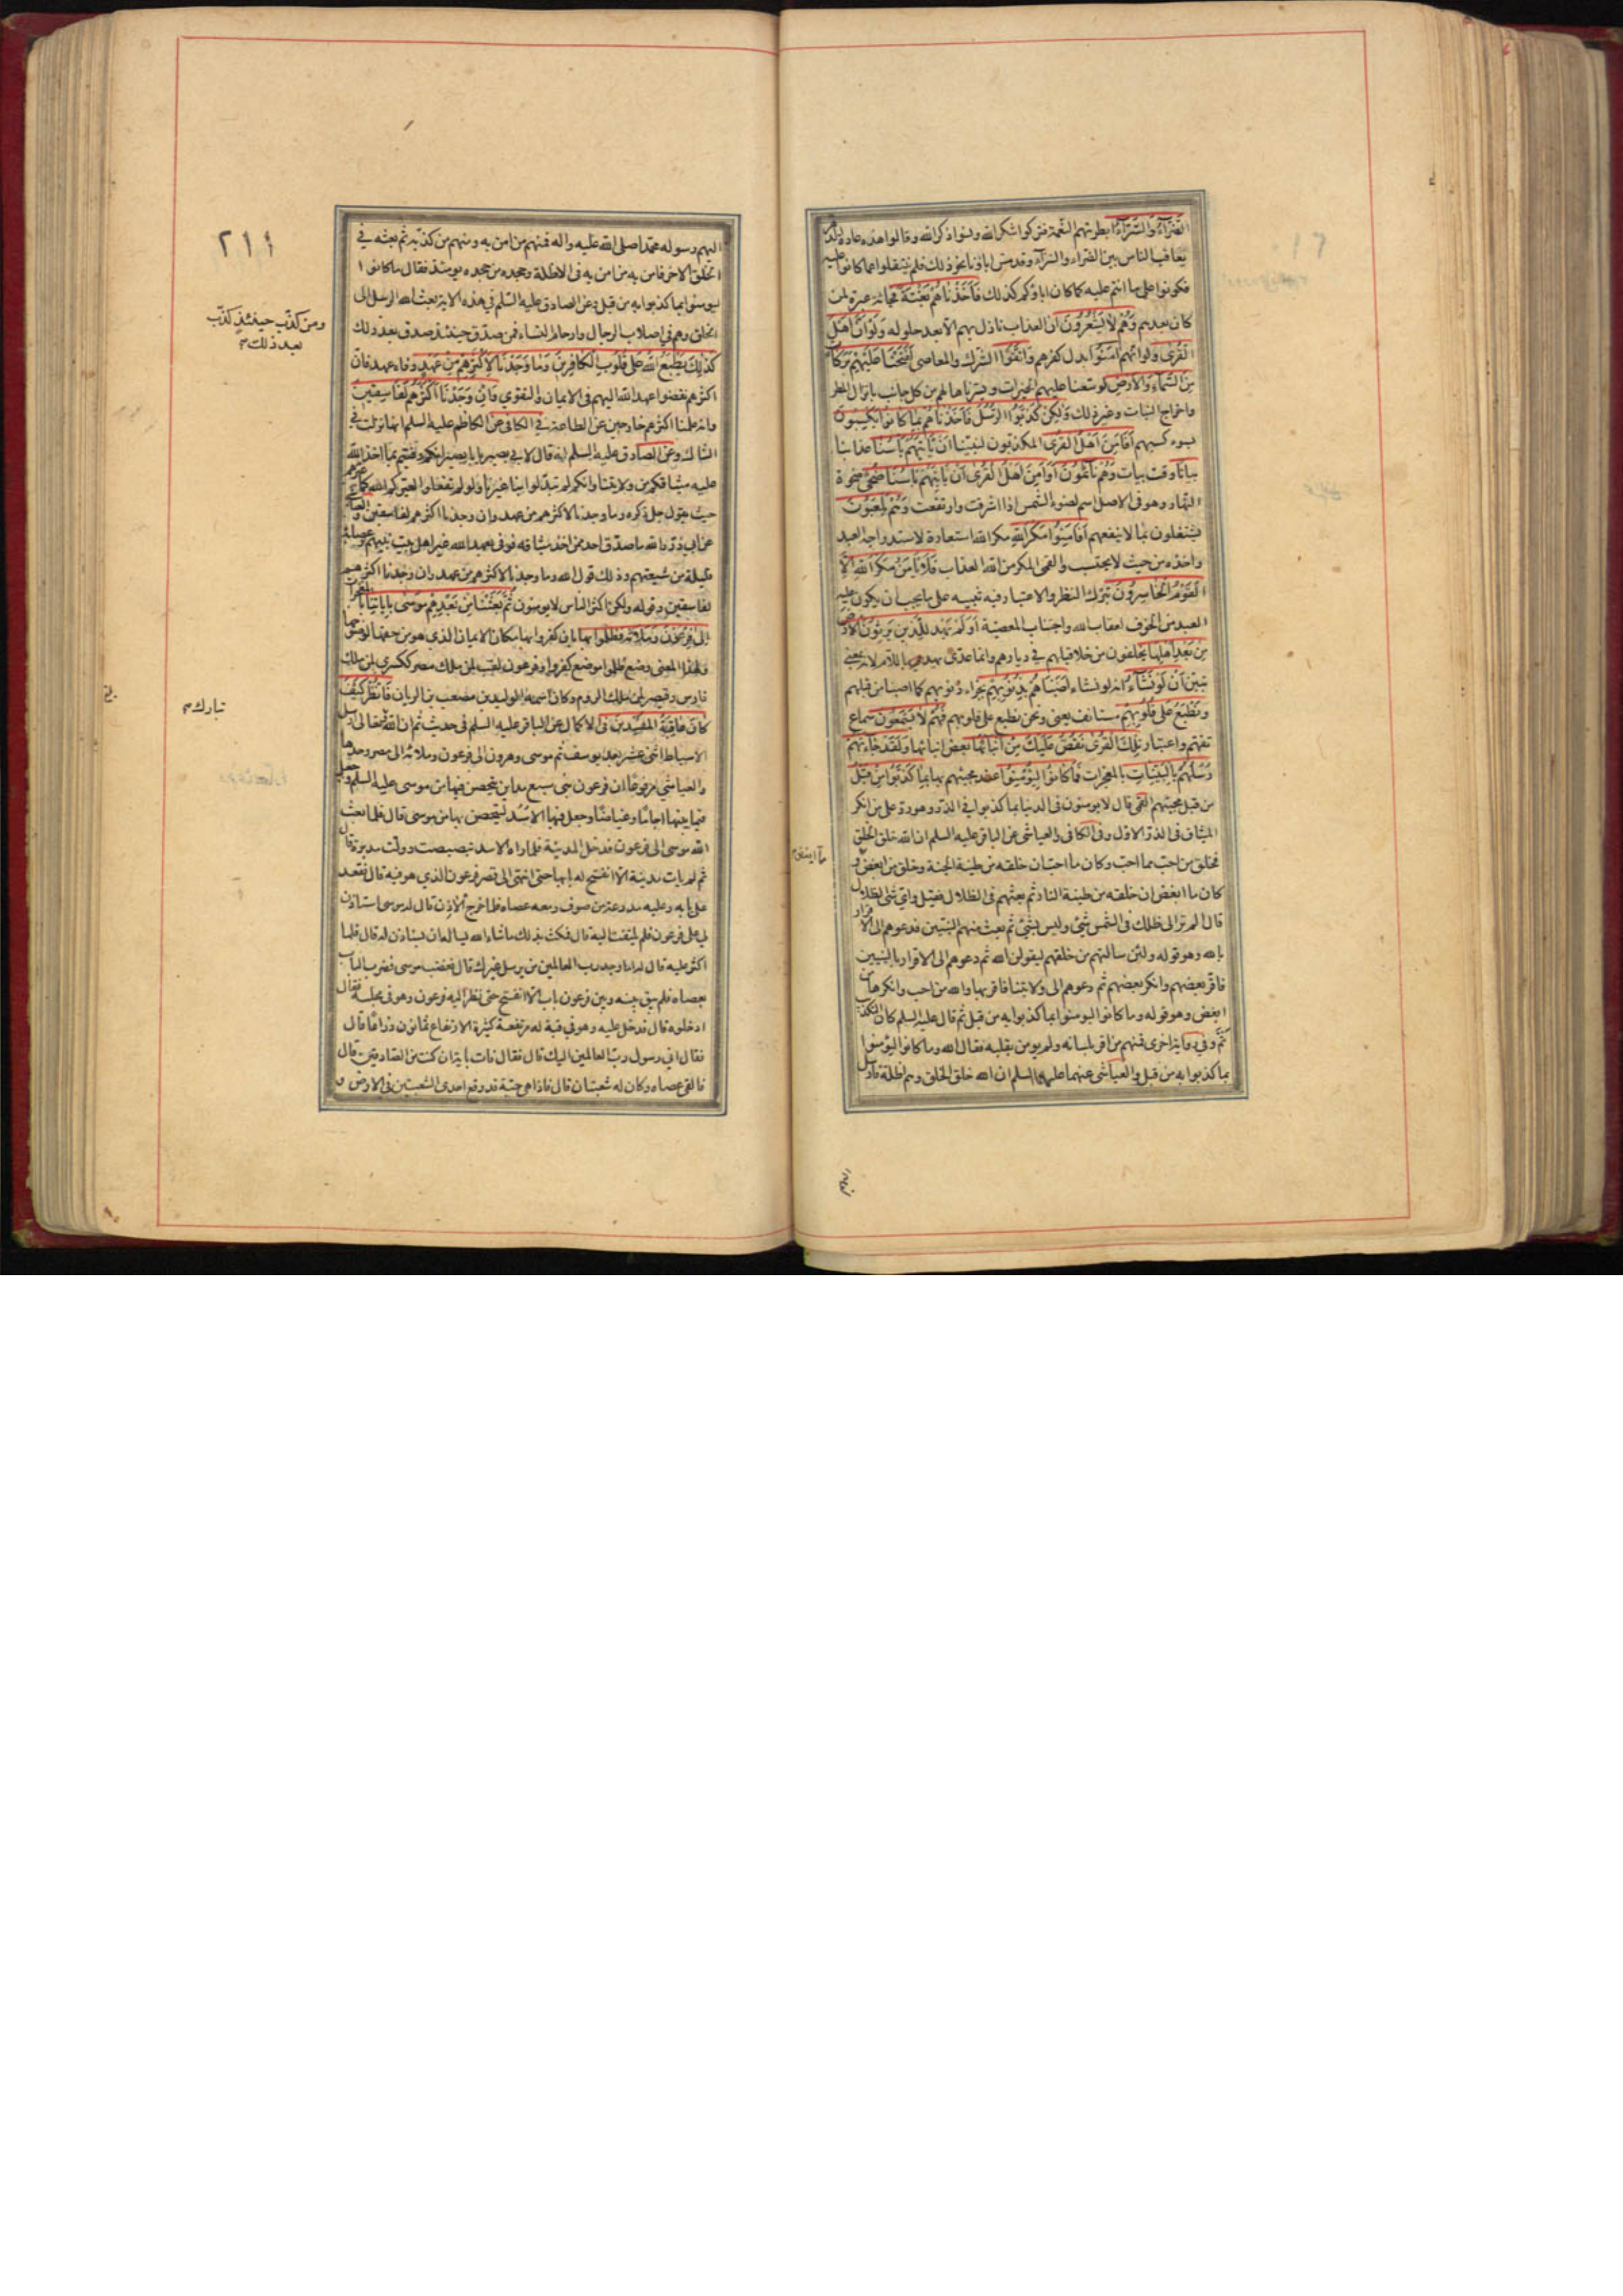 الضّرّآء والسّرّآء بطرتهم النّعمة فتركوا شكر الله ونسوا ذكر الله وقالوا هذه عادة الدّهر
يعاقب الناس بين الضراء والسرآء وقد مسّ اباؤنا نحو ذلك فلم ينتقلوا عما كانوا عليه
فكونوا على ما انتم عليه كما كان اباؤكم كذلك فَاَخَذْنَاهُمْ بَغْتَةً فجائة عبرة لمن
كان بعدهم وَهُمْ لَا يَشْعُرُونَ ان العذاب نازل بهم الّا بعد حلوله وَلَوْ اَنَّ اَهْلَ
الْقُرٰى ولو انّهم اٰمَنُوا بدل كفرهم وَاتَّقَوْا الشّرك والمعاصى لَفَتَحْنَا عَلَيْهِمْ بَرَكَاتٍ
مِنَ السَّمَاءِ وَالْاَرْضِ لوسّعنا عليهم الخيرات ويسّرناها لهم من كل جانب بانزال المطر
واخراج النبات وغير ذلك وَلٰكِنْ كَذَّبُوا الرّسُل فَاَخَذْنَاهُمْ بِمَا كَانُوا يَكْسِبُونَ
بسوء كسبهم اَفَاَمِنَ اَهْلُ الْقُرٰى المكذبون لنبيّنا اَنْ يَاْتِيَهُمْ بَاْسُنَا عذابنا
بياتا وقت بيات وَهُمْ نَائِمُونَ اَوَاَمِنَ اَهْلُ الْقُرٰى اَنْ يَاْتِيَهُمْ بَاْسُنَا ضُحًى ضحوة
النّهار وهو فى الاصل اسم لضوء الشمس اذا اشرقت وارتفعت وَهُمْ يَلْعَبُونَ
يشتغلون بما لا ينفعهم اَفَاَمِنُوا مَكْرَ اللهِ مكر الله استعارة لاستدراجه العبد
واخذه من حيث لا يحتسب والقمى المكر من الله العذاب فَلَا يَاْمَنُ مَكْرَ اللهِ اِلَّا
الْقَوْمُ الْخَاسِرُونَ بترك النظر والاعتبار وفيه تنبيه على ما يجب ان يكون عليه
العبد من الخوف لعقاب الله واجتناب المعصية اَوَلَمْ يَهْدِ لِلَّذِينَ يَرِثُونَ الْاَرْضَ
مِنْ بَعْدِ اَهْلِهَا يخلفون من خلا قبلهم فى ديارهم وانما عدّى يهد باللام لانه بمعنى
يتبيّن اَنْ لَوْ نَشَاءُ انه لو نشاء اَصَبْنَاهُمْ بِذُنُوبِهِمْ بجزاء ذنوبهم كما اصبنا من قبلهم
وَنَطْبَعُ عَلٰى قُلُوبِهِمْ مستانف يعنى ونحن نطبع على قلوبهم فَهُمْ لَا يَسْمَعُونَ سماع
تفهّم واعتبار تِلْكَ الْقُرٰى نَقُصُّ عَلَيْكَ مِنْ اَنْبَائِهَا بعض انبائها وَلَقَدْ جَاءَتْهُمْ
رُسُلُهُمْ بِالْبَيِّنَاتِ بالمعجزات فَمَا كَانُوا لِيُؤْمِنُوا عند مجيئهم بها بِمَا كَذَّبُوا مِنْ قَبْلُ
من قبل مجيئهم القمى قال لا يومنون فى الدنيا بما كذبوا فى الذر وهو رد على من انكر
الميثاق فى الذر الاول وفى الكافى والعياشى عن الباقر عليه السلم ان الله خلق الخلق
فخلق من احب مما احب وكان ما احبّ ان خلقه من طينة الجنة وخلق من ابغض مما
كان ما ابغض ان خلقه من طينة النار ثم بعثهم فى الظلال فقيل واى شى الظلال
قال الم تر الى ظلك فى الشمس شئ وليس بشئ ثم بعث منهم النبيّين فدعوهم الى الاقرار
بالله وهو قوله ولئن سالتهم من خلقهم ليقولن الله ثم دعوهم الى الاقرار بالنبيين
فاقرّ بعضهم وانكر بعضهم ثم دعوهم الى ولايتنا فاقر بها والله من احب وانكرها من
ابغض وهو قوله وما كانوا ليومنوا بما كذبوا به من قبل ثم قال عليه السلم كان التكذيب
ثَمَّ وفى رواية اخرى فمنهم من اقر بلسانه ولم يومن بقلبه فقال الله وما كانوا ليؤمنوا
بما كذبوا به من قبل والعياشى عنهما عليهما السلم ان الله خلق الخلق وهم اظلة فارسل
اليهم
٢١١
اليهم رسوله محمّدا صلى الله عليه واله فمنهم من امن به ومنهم من كذّبه ثم بعثه فى
الخلق الاخر فامن به من امن به فى الاظلة وجحده من جحده يومئذ فقال ما كانوا
ليومنوا بما كذبوا به من قبل وعن الصادق عليه السّلم فى هذه الاية بعث الله الرسل الى
الخلق وهم فى اصلاب الرجال وارحام النساء فمن صدّق حينئذ صدق بعد ذلك
ومن كذّب حينئذ كذّب
بعد ذلك
كَذٰلِكَ يَطْبَعُ اللهُ عَلٰى قُلُوبِ الْكَافِرِينَ وَمَا وَجَدْنَا لِاَكْثَرِهِمْ مِنْ عَهْدٍ وفاء عهد فان
اكثرهم نقضوا عهد الله اليهم فى الايمان والتقوى وَاِنْ وَجَدْنَا اَكْثَرَهُمْ لَفَاسِقِينَ
وانه علمنا اكثرهم خارجين عن الطاعة فى الكافى عن الكاظم عليه السلم انها نزلت فى
الشاك وعن الصادق عليه السلم انه قال لابى بصير يا با بصير انكم وفيتم بما اخذ الله
عليه ميثاقكم من ولايتنا وانكم لم تبدّلوا بنا غيرنا ولو لم تفعلوا لعيّركم الله كما عيّرهم
حيث يقول جل ذكره وما وجدنا لاكثرهم من عهد وان وجدنا اكثرهم لفاسقين والعياشى
عن ابى ذرّ والله ما صدّق احد ممن اخذ ميثاقه فوفى بعهد الله غير اهل بيت نبيهم وعصابة
قليلة من شيعتهم وذلك قول الله وما وجدنا لاكثرهم من عهد وان وجدنا اكثرهم
لفاسقين وقوله ولكن اكثر الناس لا يومنون ثُمَّ بَعَثْنَا مِنْ بَعْدِهِمْ مُوسٰى بِاٰيَاتِنَا بالمعجزات
اِلٰى فِرْعَوْنَ وَمَلَائِهِ فَظَلَمُوا بِهَا بان كفروا بها مكان الايمان الذى هو من حقها لوضوحها
ولهذا المعنى وضع ظلموا موضع كفروا وفرعون لقب لمن ملك مصر ككسرى لمن ملك
فارس وقيصر لمن ملك الروم وكان اسمه الوليد بن مصعب بن الريان فَانْظُرْ كَيْفَ
كَانَ عَاقِبَةُ الْمُفْسِدِينَ فى الاكمال عن الباقر عليه السلم فى حديث ثم ان الله تعالى ارسل
تبارك
الاسباط اثنى عشر بعد يوسف ثم موسى وهرون الى فرعون وملائه الى مصر وحدها
والعياشى مرفوعًا ان فرعون بنى سبع مداين يتحصن فيها من موسى عليه السلم وجعل
فيما بينها اجاما وغياضًا وجعل فيها الاسد ليتحصن بها من موسى قال فلما بعث
الله موسى الى فرعون فدخل المدينة فلما راه الاسد تبصبصت وولّت مدبرة قال
ثم لم يات مدينة الّا انفتح له بابها حتى انتهى الى قصر فرعون الذى هو فيه قال فقعد
على بابه وعليه مدرعة من صوف ومعه عصاه فلما خرج الاذن قال له موسى استاذن
لى على فرعون فلم يلتفت اليه قال فمكث بذلك ما شاء الله يساله ان يستاذن له قال فلما
اكثر عليه قال له اما وجد رب العالمين من يرسل غيرك قال فغضب موسى فضرب الباب
بعصاه فلم يبق بينه وبين فرعون باب الّا انفتح حتى نظر اليه فرعون وهو فى مجلسه فقال
ادخلوه قال فدخل عليه وهو فى قبة له مرتفعة كثيرة الارتفاع ثمانون ذراعًا قال
فقال انى رسول ربّ العالمين اليك قال فقال فات باية ان كنت من الصادقين قال
فالقى عصاه وكان له شعبتان قال فاذا هى حيّة قد وقع احدى الشعبتين فى الارض و